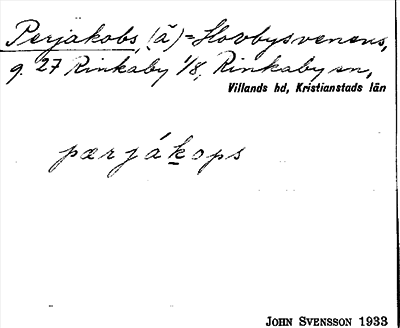 Perjakobs, (ä) = Hovbysvenens,
g. 27 Rinkaby 1/8, Rinkaby sn,
Villands hd, Kristianstads län
pærjákops
JOHN SVENSSON 1933